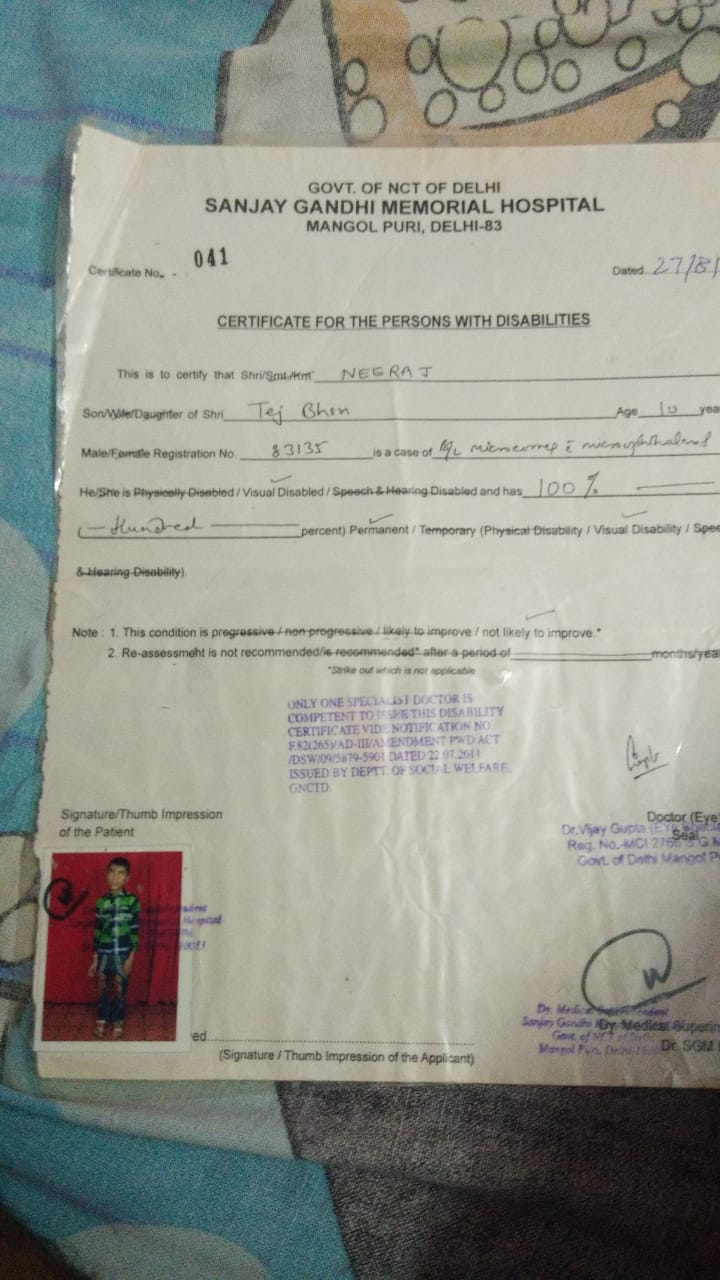 GOVT. OF NCT OF DELHI
SANJAY GANDHI MEMORIAL HOSPITAL
MANGOL PURI, DELHI-83
Certificate No. - 041
Dated 27/8/
CERTIFICATE FOR THE PERSONS WITH DISABILITIES
This is to certify that Shri/Smt./Km NEERAJ
Son/Wife/Daughter of Shri Tej Bhan Age 10 yea
Male/Female Registration No. 83135 is a case of
He/She is Physically Disabled / Visual Disabled / Speech & Hearing Disabled and has 100 %
(— Hundred — percent) Permanent / Temporary (Physical Disability / Visual Disability / Spee
& Hearing Disability).
Note : 1. This condition is progressive / non progressive / likely to improve / not likely to improve.*
2. Re-assessment is not recommended/is recommended* after a period of months/yea
*Strike out which is not applicable
ONLY ONE SPECIALIST DOCTOR IS
COMPETENT TO ISSUE THIS DISABILITY
CERTIFICATE VIDE NOTIFICATION NO.
F.82(265)/AD-III/AMENDMENT PWD ACT
/DSW/09/5879-5901 DATED 22.07.2011
ISSUED BY DEPTT. OF SOCIAL WELFARE,
GNCTD.
Signature/Thumb Impression
of the Patient
Doctor (Eye)
Seal
Dr.Vijay Gupta
Reg. No.-MCI S.G.M
Govt. of Delhi Mangol P
Hospital
Dy. Medical
Sanjay Gandhi
Govt. of NCT of
Mangol Puri, Delhi
Dy. Medical Superin
Dr. SGM
ed
(Signature / Thumb Impression of the Applicant)